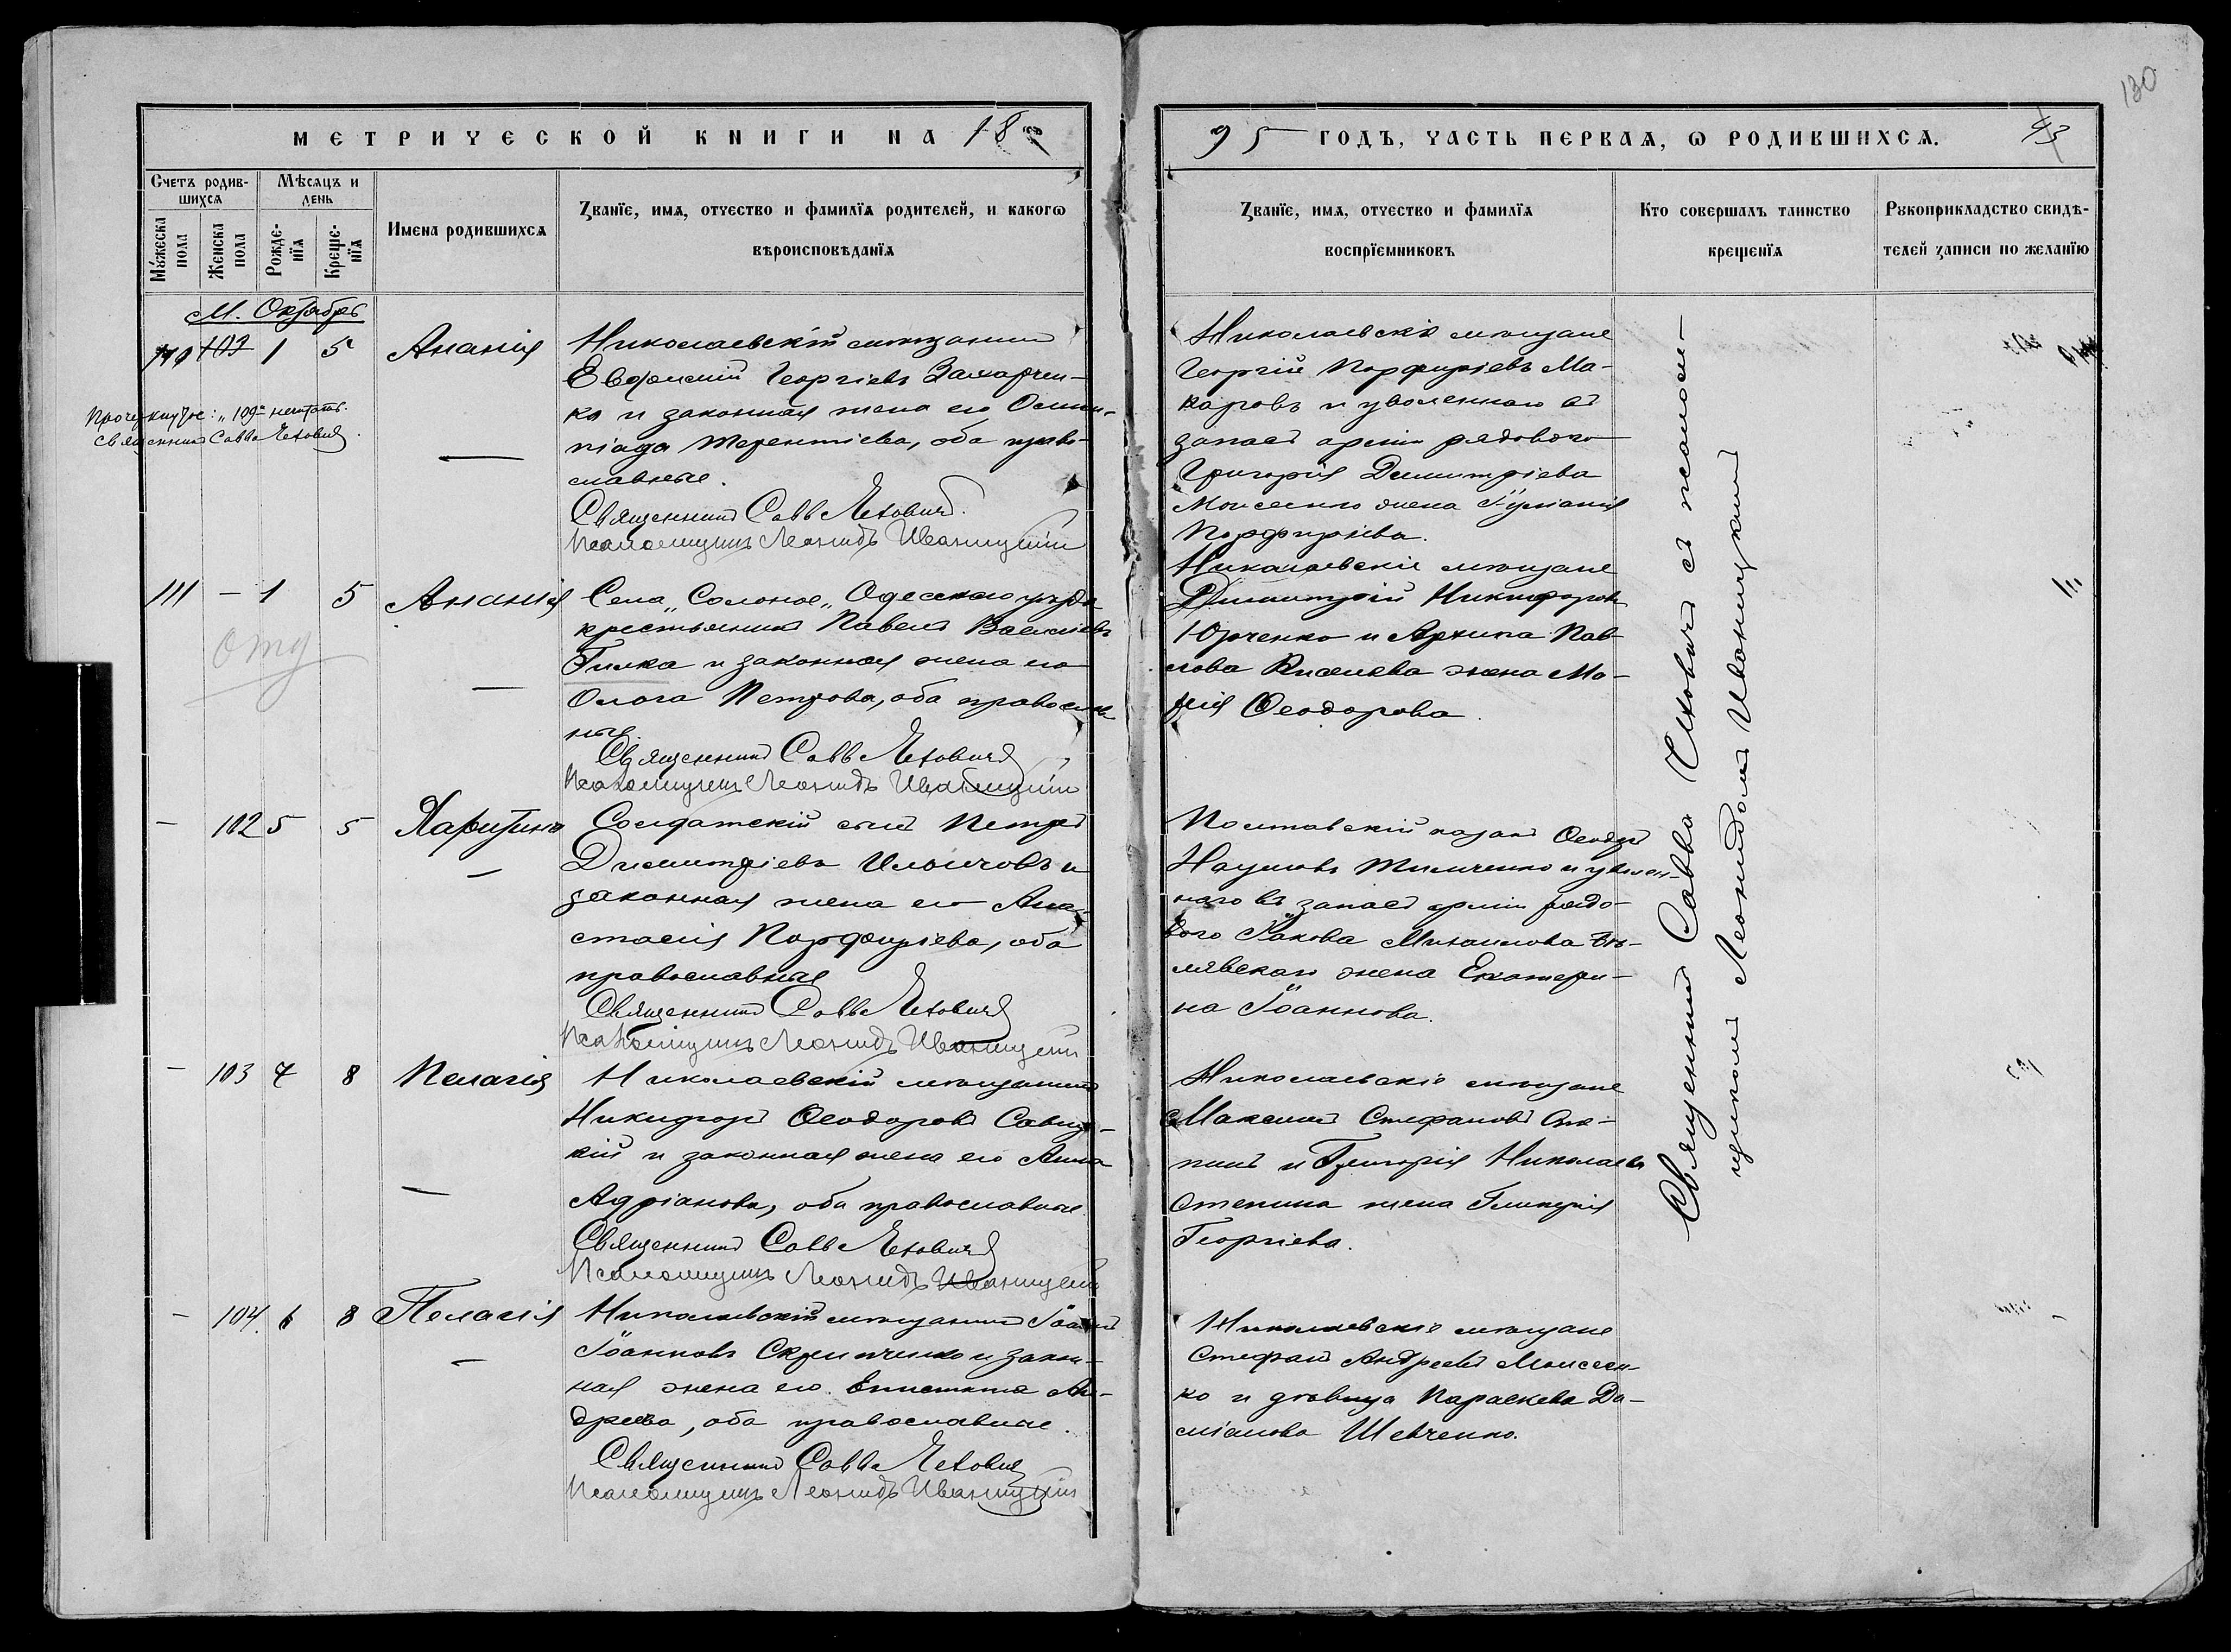 130
МЕТРИЧЕСКОЙ КНИГИ НА 18
95 ГОДЪ, ЧАСТЬ ПЕРВАѦ, Ѡ РОДИВШИХСѦ.
43
Счетъ родив-
шихсѧ
Мѣсѧцъ и
день
Мꙋжеска
пола
Женска
пола
Рожде-
нїѧ
Креще-
нїѧ
Имена родившихсѧ
Званїе, имѧ, отчество и фамилїѧ родителей, и какогѡ
вѣроисповѣданїѧ
Званїе, имѧ, отчество и фамилїѧ
воспрїемниковъ
Кто совершалъ таинство
крещенїѧ
Рꙋкоприкладство свидѣ-
телей записи по желанїю
М. Октябрь
110 109 1 5 Ананія
Николаевскій мѣщанинъ
Евфимій Георгіевъ Захарчен-
ко и законная жена его Олим-
піада Терентіева, оба право-
славные.
Священникъ Савва Чехович
Псаломщикъ Леонидъ Иваницкій
„109" нечитать.
священникъ Савва Чехович
Николаевскіе мѣщане
Георгій Порфиріевъ Ма-
каровъ и уволеннаго въ
запасъ арміи рядового
Григорія Димитріева
Моисеенко жена Іуліанія
Порфиріева.
111 – 1 5 Ананія
отд
Села „Солоное„ Одесскаго уѣзда
крестьянинъ Павелъ Васильевъ
Гилка и законная жена его
Ольга Петрова, оба православ
ные.
Священникъ Савва Чехович
Псаломщикъ Леонидъ Иваницкій
Николаевскіе мѣщане
Димитрій Никифоровъ
Юрченко и Архипа Пав-
лова Киселева жена Ма-
рія Ѳеодорова.
– 102 5 5 Харитина
Солдатскій сынъ Петръ
Димитріевъ и
законная жена его Ана-
стасія Порфиріева, оба
православные
Священникъ Савва Чехович
Псаломщикъ Леонидъ Иваницкій
Полтавскій казакъ Ѳеодоръ
Наумовъ Тимченко и уволен-
наго въ запасъ арміи рядо-
вого Іакова Михаилова
жена Екатери-
на Іоаннова.
– 103 7 8 Пелагія
Николаевскій мѣщанинъ
Никифоръ Ѳеодоровъ Савиц-
кій и законная жена его Анна
Адріанова, оба православные
Священникъ Савва Чехович
Псаломщикъ Леонидъ Иваницкій
Николаевскіе мѣщане
Максимъ Стефановъ
и Григорія Николаева
жена Гликерія
Георгіева.
– 104. 6 8 Пелагія
Николаевскій мѣщанинъ Іоаннъ
Іоанновъ Скрипченко и закон-
ная жена его Епистимія Ан-
дреева, оба православные.
Священникъ Савва Чехович
Псаломщикъ Леонидъ Иваницкій
Николаевскіе мѣщане
Стефанъ Андреевъ Моисеен-
ко и дѣвица Параскева Да-
міанова Шевченко.
Священникъ Савва Чехович съ псалом-
щикомъ Леонидомъ Иваницкимъ